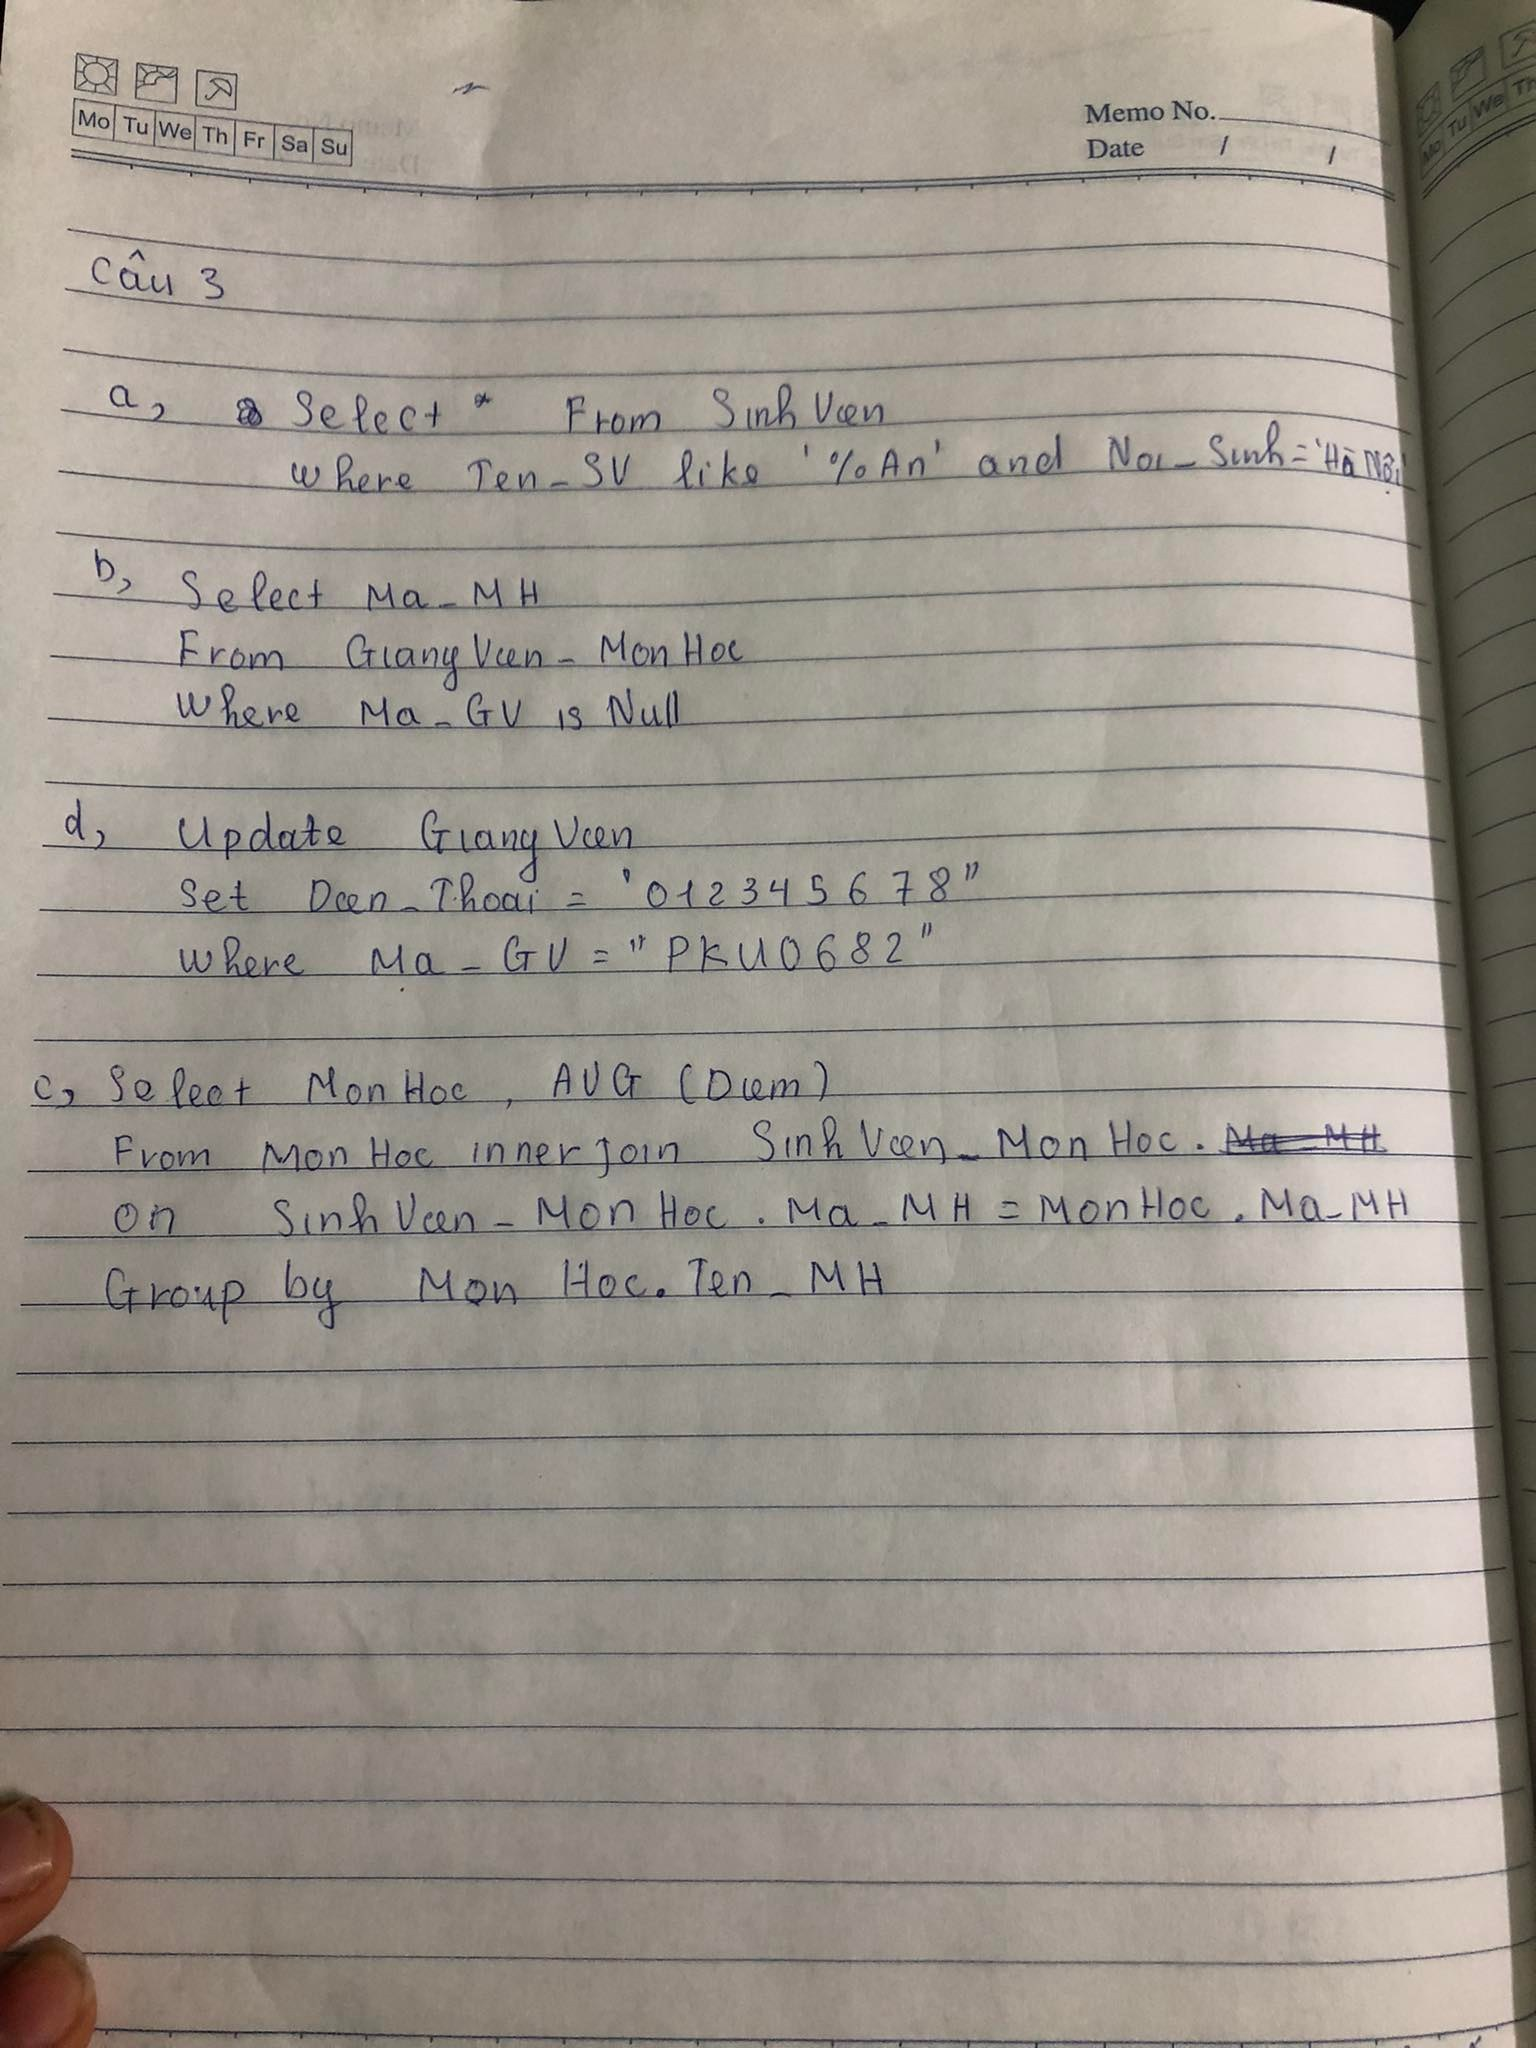 Mo Tu We Th Fr Sa Su
Memo No.
Date / /
Câu 3
a, Select * From SinhVien
Where Ten_SV like '%An' and Noi_Sinh='Hà Nội'
b, Select Ma_MH
From GiangVien_MonHoc
Where Ma_GV is Null
d, Update GiangVien
Set Dien_Thoai = '012345678"
Where Ma_GV = "PKU0682"
c, Select MonHoc, AVG (Diem)
From MonHoc inner join SinhVien_MonHoc. Ma_MH
on SinhVien_MonHoc.Ma_MH = MonHoc.Ma_MH
Group by MonHoc.Ten_MH